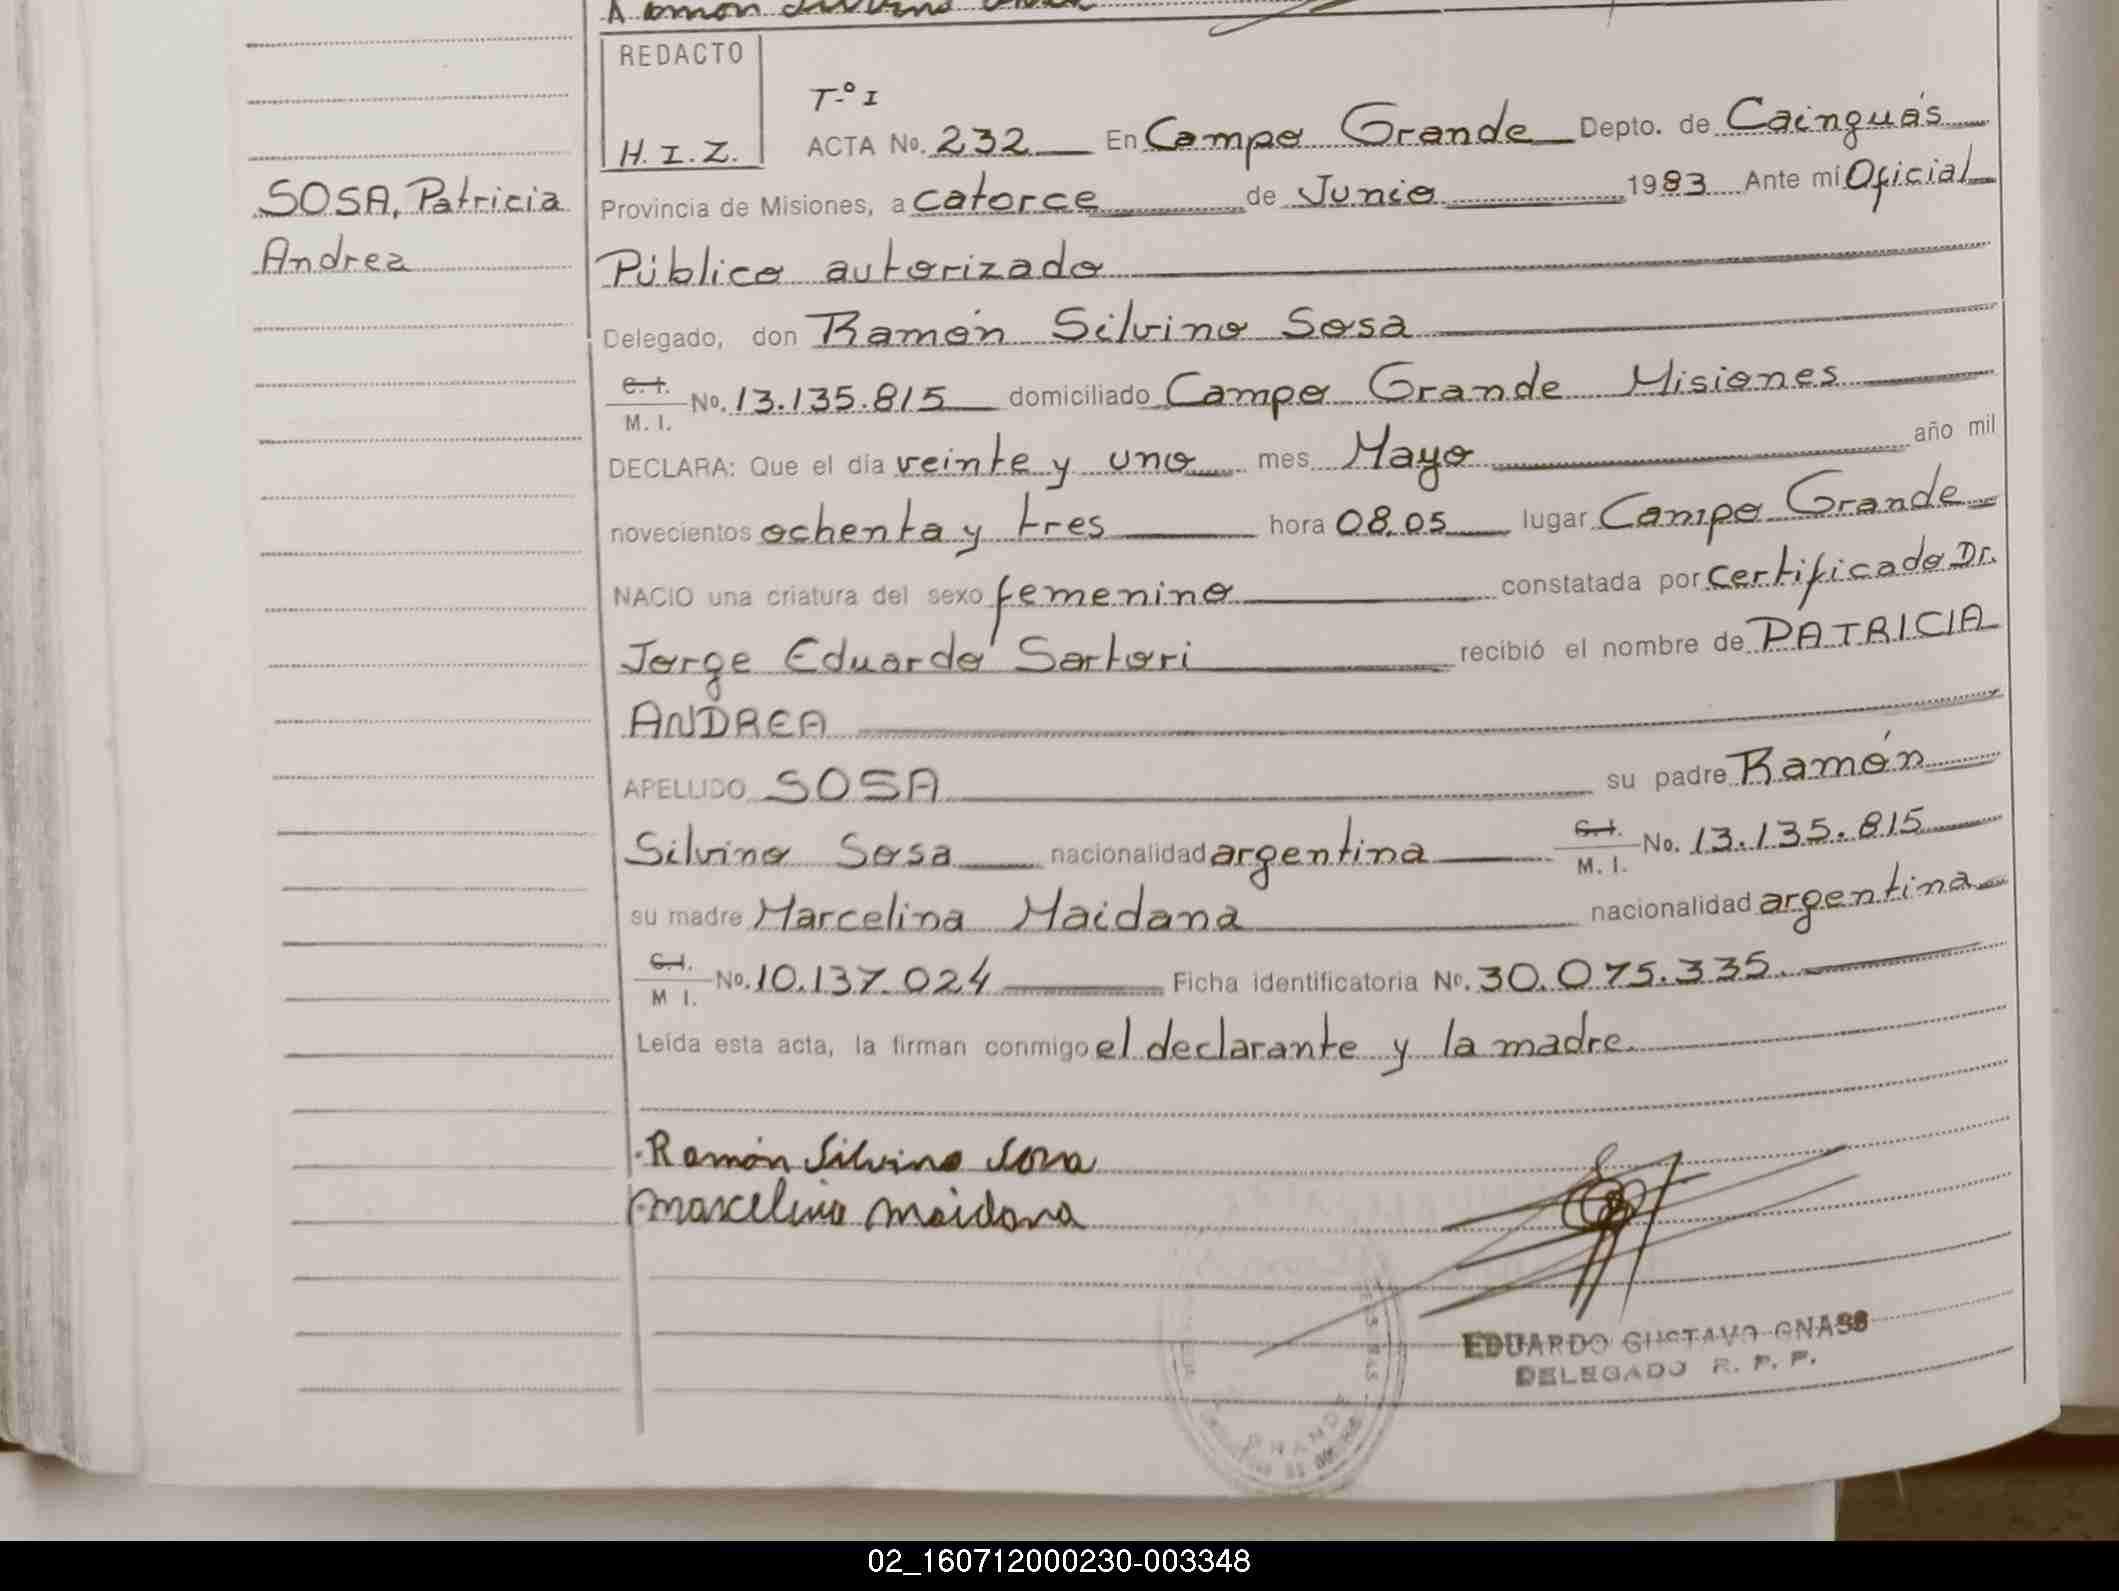 Ramón Silvino Sosa
REDACTO
H. I. Z.
SOSA, Patricia
Andrea
T.º I
ACTA No. 232 En Campo Grande Depto. de Cainguás
Provincia de Misiones, a catorce de Junio 1983 Ante mí Oficial
Público autorizado
Delegado, don Ramón Silvino Sosa
C. I. M. I. No. 13.135.815 domiciliado Campo Grande Misiones
DECLARA: Que el día veinte y uno mes Mayo año mil
novecientos ochenta y tres hora 08.05 lugar Campo Grande
NACIO una criatura del sexo femenino constatada por certificado Dr.
Jorge Eduardo Sartori recibió el nombre de PATRICIA
ANDREA
APELLIDO SOSA su padre Ramón
Silvino Sosa nacionalidad argentina C. I. M. I. No. 13.135.815
su madre Marcelina Maidana nacionalidad argentina
C. I. M. I. No. 10.137.024 Ficha identificatoria No. 30.075.335
Leída esta acta, la firman conmigo el declarante y la madre.
Ramón Silvino Sosa
Marcelina Maidana
EDUARDO GUSTAVO GNASS
DELEGADO R. P. P.
GRANDE
02_160712000230-003348